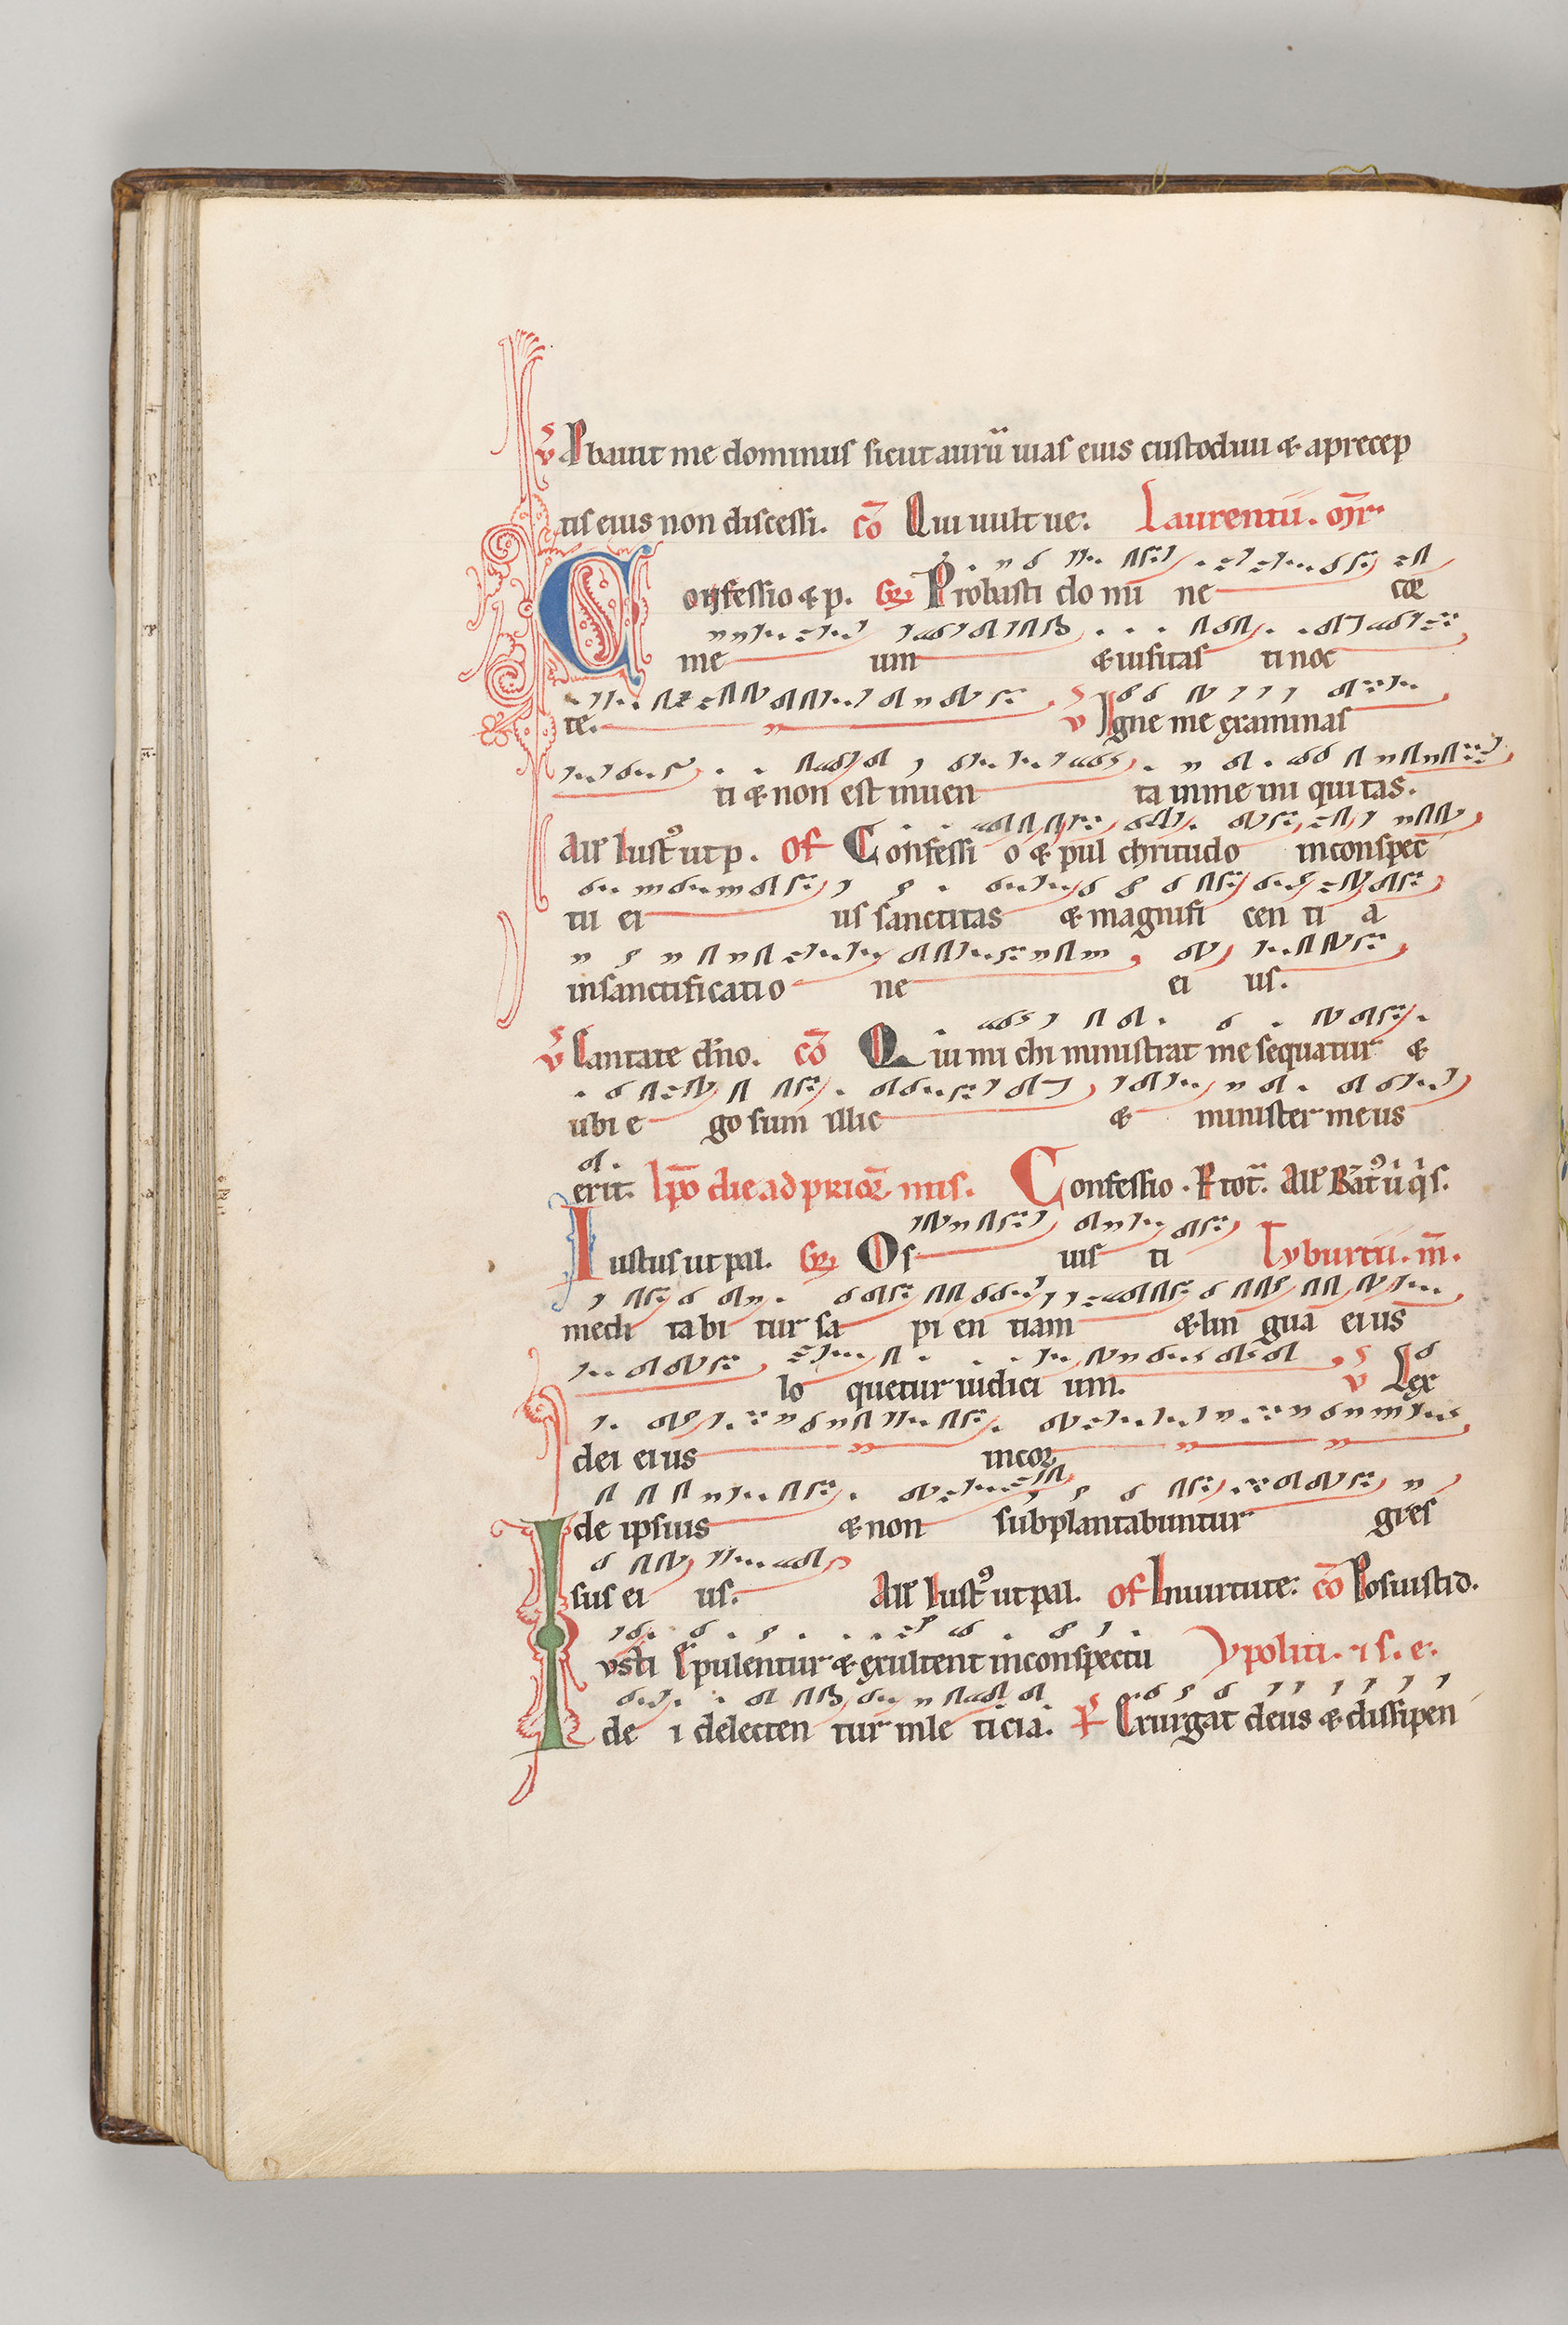 v̄ Pbauit me dominus sicut aurū uias eius custodiui & a precep
tis eius non discessi. cō Qui uult ue: Laurentii. m̄r
Confessio & p. Gr̄. Probasti do mi ne cor
me um & uisitas ti noc
te. v Igne me examinas
ti & non est inuen ta in me ini quitas.
All' Iust⁹ ut p. Of Confessi o & pul chritudo in conspec
tu ei us sanctitas & magnifi cen ti a
in sanctificatio ne ei us.
v̄ Cantate dn̄o. cō Qui mi chi ministrat me sequatur &
ubi e go sum illic & minister meus
erit. Ipō die ad priorē mis. Confessio. P tot̄. All' Bāt⁹ uˡ qˡ s.
Iustus ut pal. Gr̄. Os ius ti Tyburtii. m̄.
medi tabi tur sa pi en tiam & lin gua eius
lo quetur iudici um. v Lex
dei eius in cor
de ipsius & non subplantabuntur gres
sus ei us. All' Iust⁹ ut pal. Of In uirtute: cō Posuisti d.
Iusti Epulentur & exultent in conspectu Ypoliti. ⁊ s. e.
de i delecten tur in le ticia. P̄s Exurgat deus & dissipen